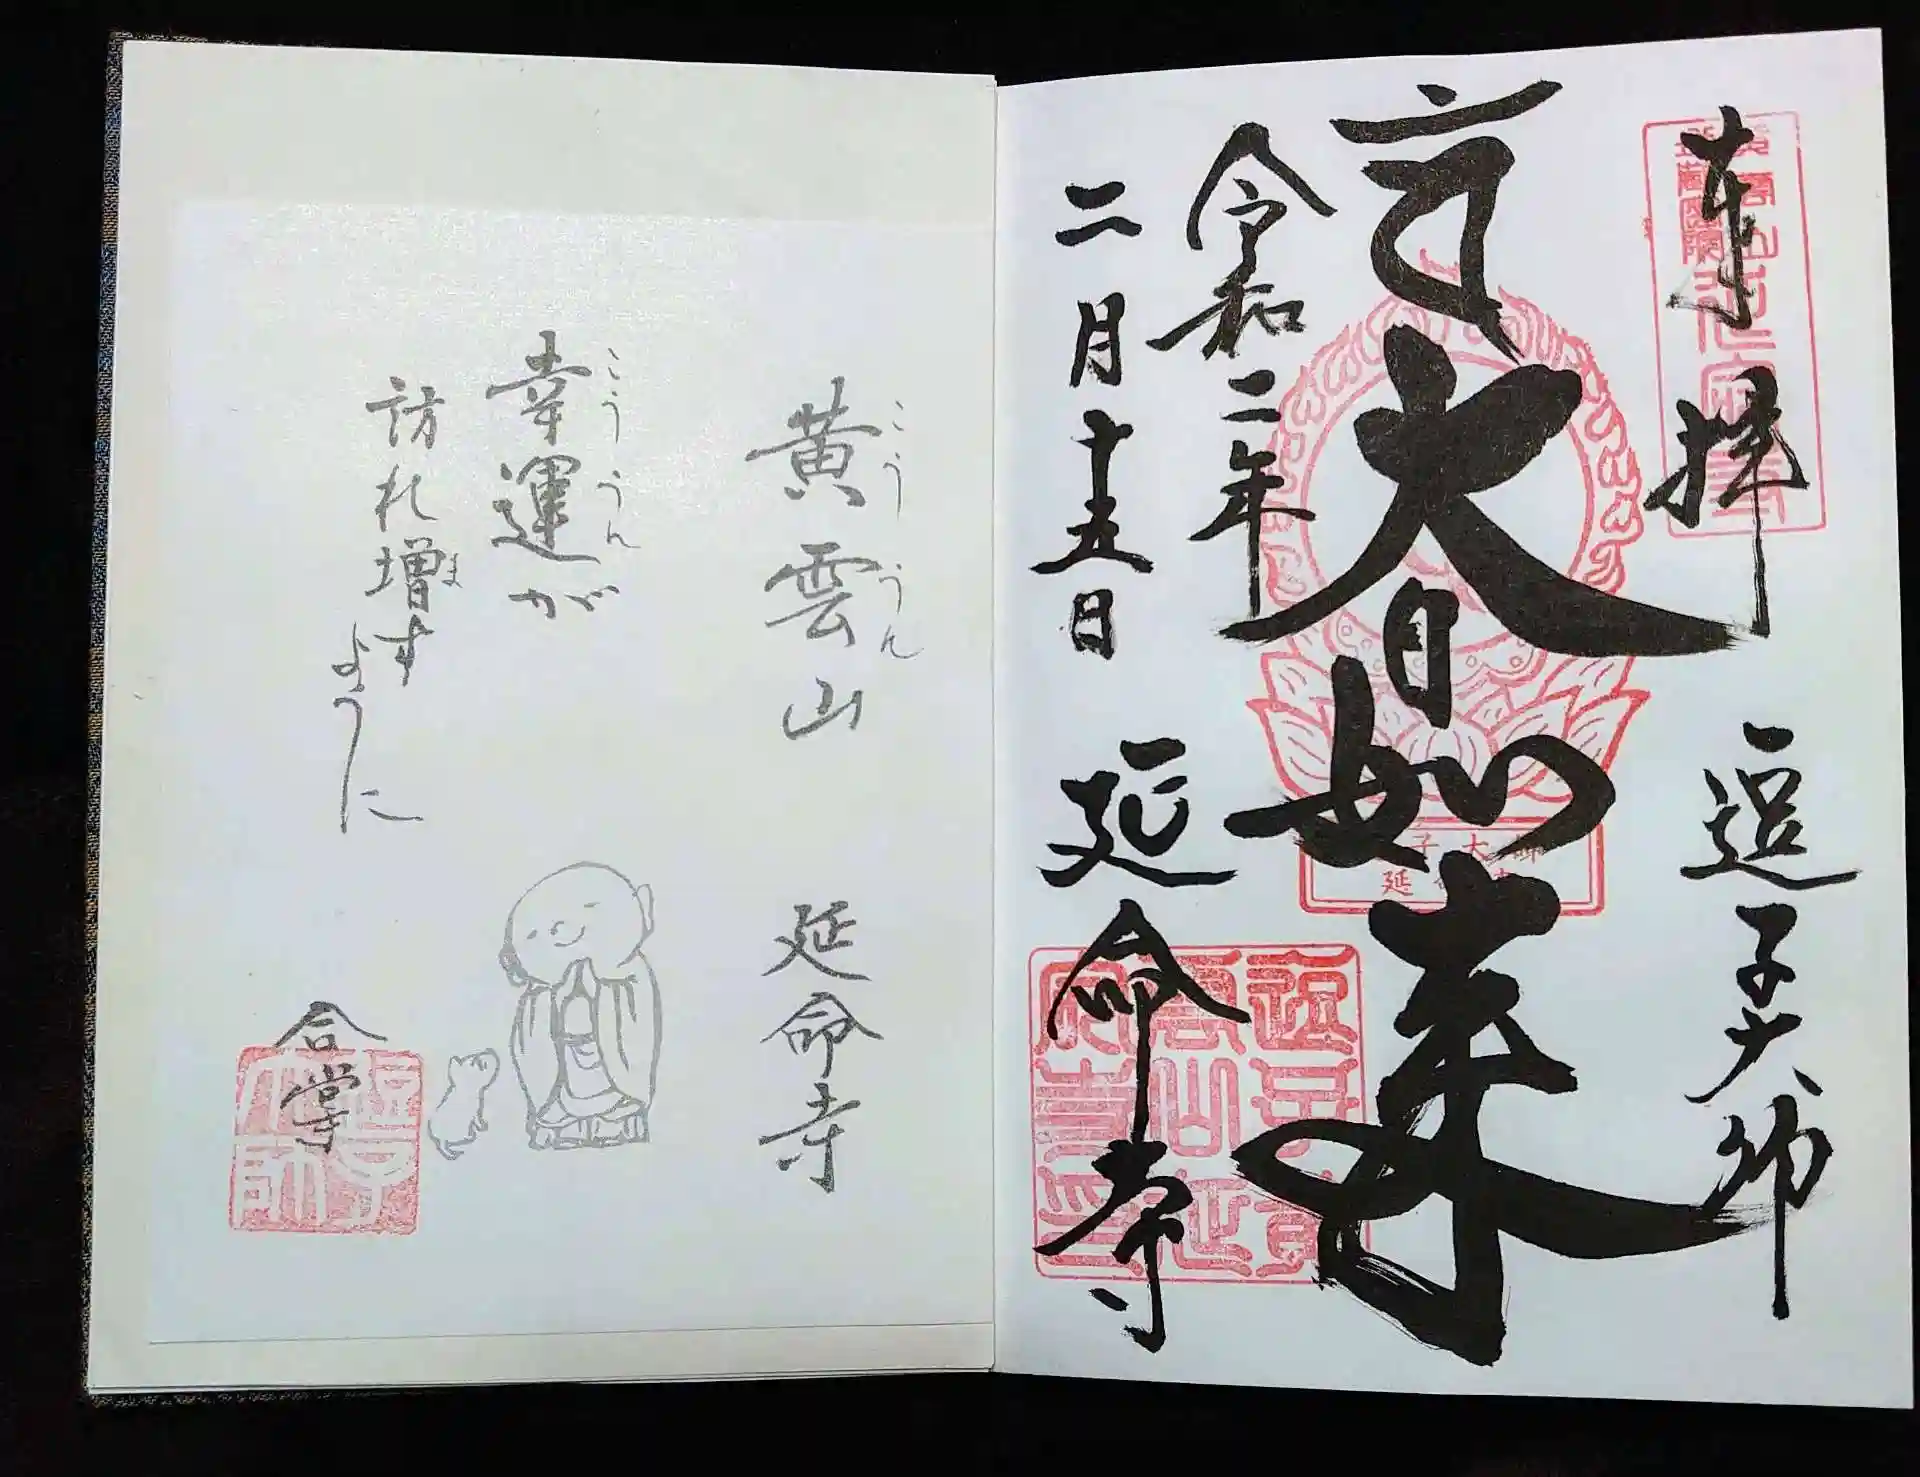 奉拝
逗子大師
大日如来
令和二年
二月十五日
延命寺
黄雲山 延命寺
こううん
幸運が
こううん
訪れ増すように
ま
合掌